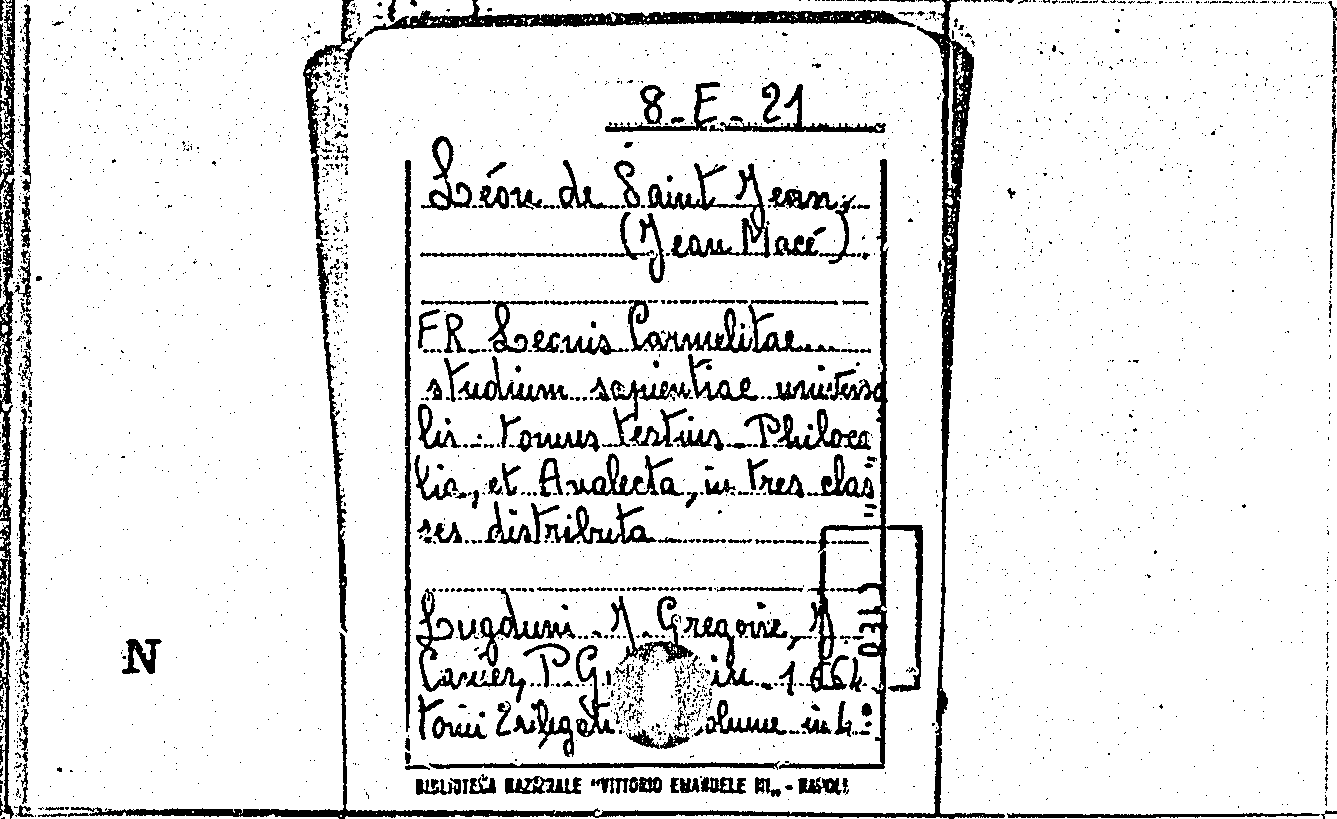 8-E-21
Léon de Saint Jean,
(Jean Macé)
FR Leonis Carmelitae...
studium sapientiae universa
lis. tomus tertius - Philoca
lia, et Analecta, in tres clas
ses distributa
Lugduni. J. Gregoire, J
Carier, P. G in. 1664
tomi 2 rilegati olume in 4°
BIBLIOTECA NAZIONALE "VITTORIO EMANUELE III„ - NAPOLI
N